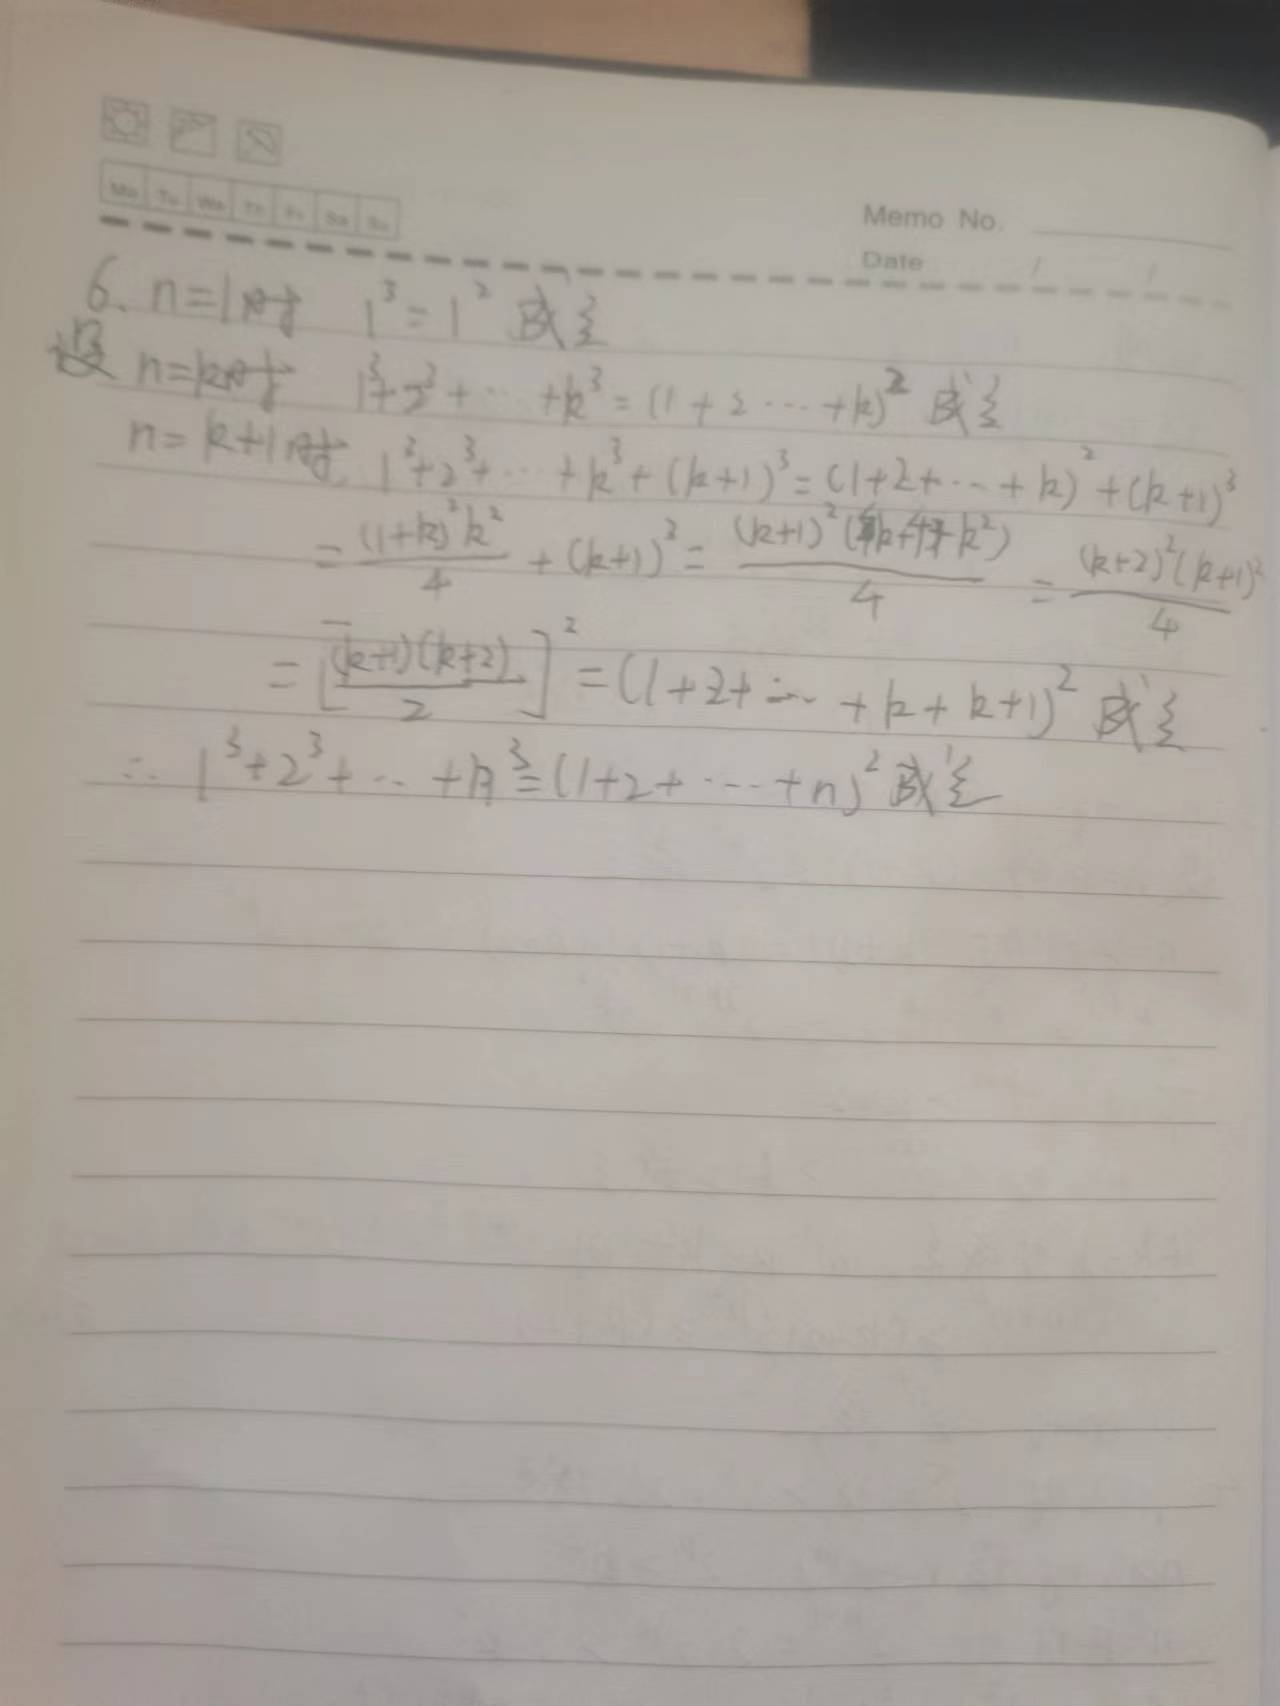 Mo Tu We Th Fr Sa Su
Memo No.
Date / /
6. n=1时 1³=1² 成立
设 n=k时 1³+2³+…+k³=(1+2…+k)² 成立
n=k+1时 1³+2³+…+k³+(k+1)³=(1+2+…+k)²+(k+1)³
=(1+k)²k²/4+(k+1)³=(k+1)²(4k+4+k²)/4=(k+2)²(k+1)²/4
=[(k+1)(k+2)/2]²=(1+2+…+k+k+1)² 成立
∴ 1³+2³+…+n³=(1+2+…+n)² 成立